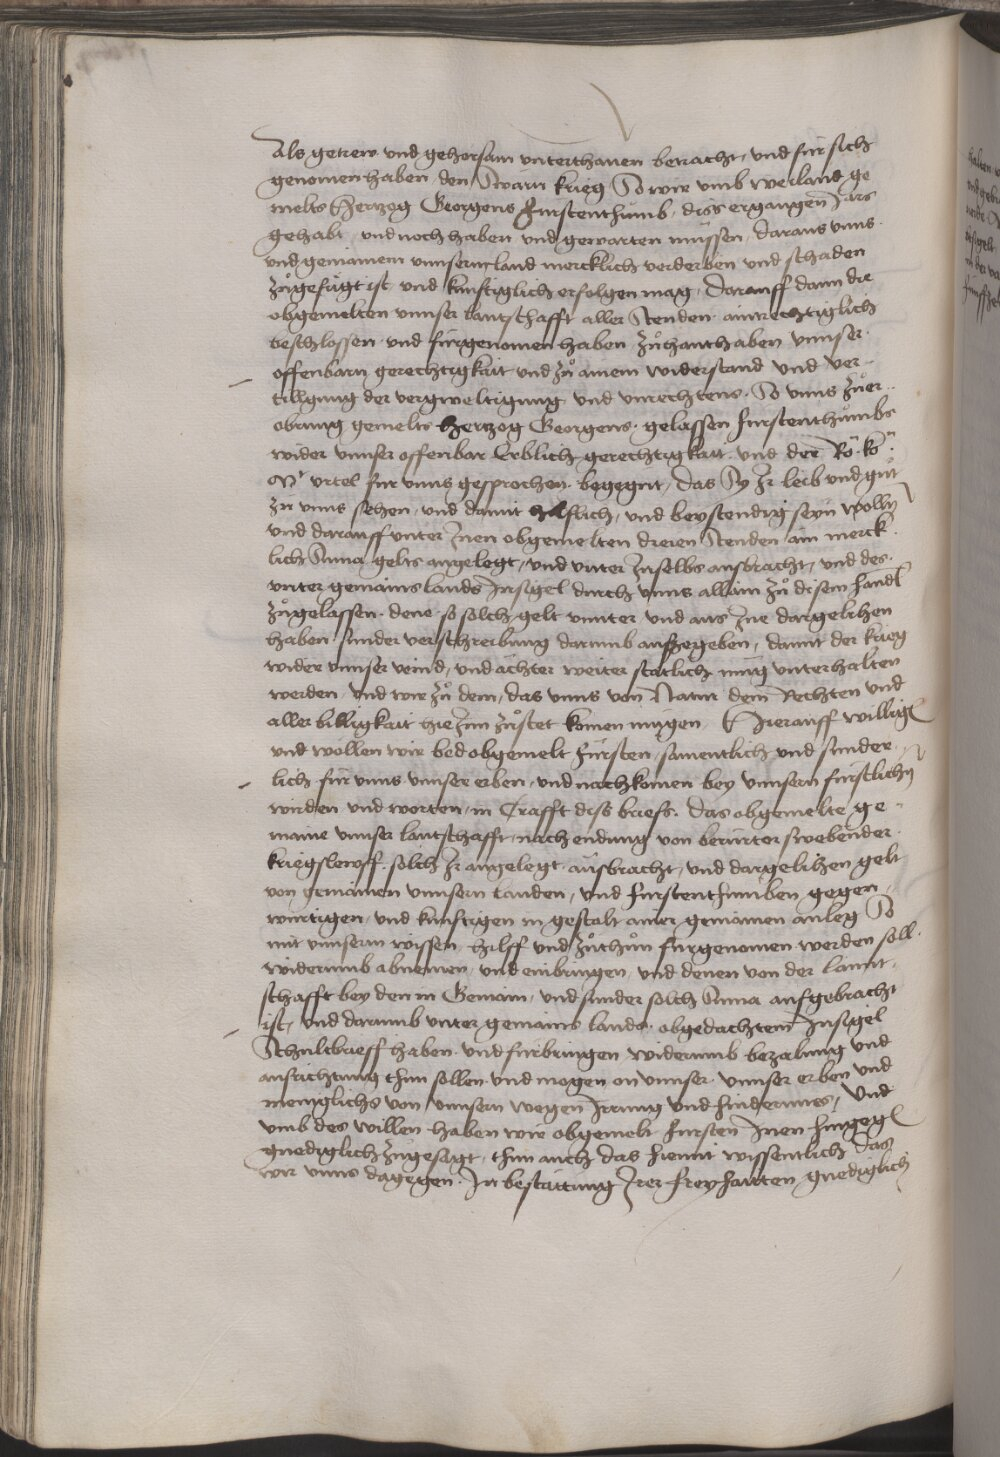 Als getrew vnd gehorsam vnterthanen betracht, vnd für sich
genomen haben, den Swärn krieg So wir vmb weiland ge
melts Hertzog Georgens Fürstenthumb, diss ergangen Jars
gehabt, vnd noch haben vnd gewarten müssen, daraus vnns
vnd gemainem vnnserm land mercklich verderben vnd schaden
zůgefügt ist, vnd künftiglich erfolgen mag, Darauff dann die
obgemelten vnnser lantschafft aller Stenden aintrechtiglich
beschlossen vnd fürgenomen haben zůhanthaben vnnser
offenbarn gerechtigkait vnd zů ainem widerstand vnd ver
tillgung der vergweltigung vnd vnrechtens. So vnns zůer
obrung gemelts Hertzog Georgens gelassen Fürstenthůmbs
wider vnnser offenbar Erblich gerechtigkait vnd der Rö. kö.
Mt vrtel für vnns gesprochen begegnt, das Sy Ir leib vnd gůt
zů vnns setzen, vnd damit hilflich, vnd beystendig seyn wolln
vnd darauff vnter Inen obgemelten dreien Stenden ain merck
lich Suma gelts angelegt, vnd vnter Inselbs ausbracht, vnd des
vnter gemains lands Insigel durch vnns allain zů disem handl
zůgelassen. dene so solch gelt vnnter vnd aus Ine dargelihen
haben sunder verschreibung darumb aufzegeben, damit der krieg
wider vnnser veind, vnd ächter weiter statlich müg vnterhalten
werden vnd wir zů dem, das vnns von Natur dem Rechten vnd
aller billigkait hie Inn zůstet komen mügen, Hierauff willign
vnd wöllen wir bed obgemelt Fürsten, samentlich vnd sunder
lich für vnns vnnser erben, vnd nachkomen bey vnnsern fürstlichn
wirden vnd worten, in Crafft diss briefs. Das obgemelte ge
maine vnnser lantschafft, nach endung von berürter swebender
kriegslewff, solch Ir angelegt, ausbracht, vnd dargelihen gelt
von gemainen vnnsern Landen, vnd Fürstenthumben gegen
würtigen, vnd künftigen in gestalt ainer gemainen anleg So
mit vnnserm wissen, hilff vnd zůthůn fürgenomen werden soll.
widerumb abnemen, vnd einbringen, vnd denen von der lannt
schafft bey den in Gemain, vnd sunder solch Suma aufgebracht
ist, vnd darumb vnter gemains lands obgedachtem Insigel
Schultbrieff haben. vnd fürbringen widerumb bezalung vnd
ausrichtung thun sollen vnd mogen on vnnser. vnnser erben vnd
meniglichs von vnnsern wegen Irrung vnd hindernus, Vnd
vmb des willen haben wir obgemelt Fürsten Inen hingegn
gnediglich zůgesagt, thun auch das hiemit wissentlich das
wir vnns dagegen. In bestättung Irer Freyhaiten gnediglich